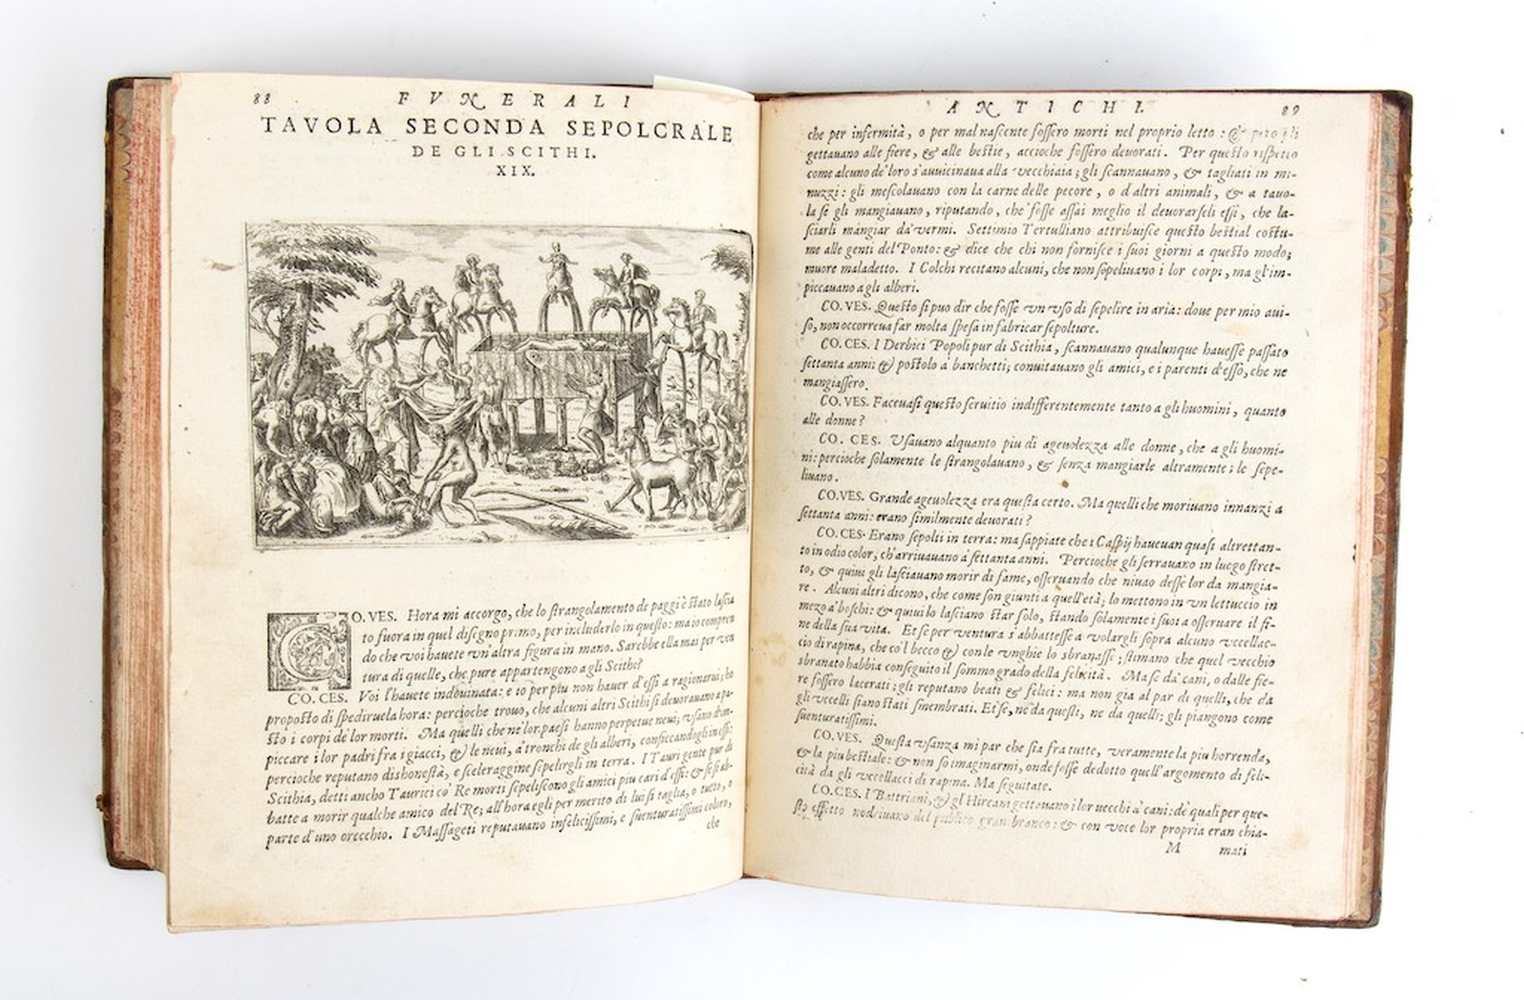 88 FVNERALI
TAVOLA SECONDA SEPOLCRALE
DE GLI SCITHI.
XIX.
CO. VES. Hora mi accorgo, che lo strangolamento de paggi è stato lascia
to fuora in quel disegno primo, per includerlo in questo: ma io compren
do che voi hauete vn'altra figura in mano. Sarebbe ella mai per ven
tura di quelle, che pure appartengono a gli Scithi?
CO. CES. Voi l'hauete indouinata: e io per piu non hauer d'essi a ragionarui; ho
proposto di spediruela hora: percioche trouo, che alcuni altri Scithi si deuorauano a pa-
sto i corpi de' lor morti. Ma quelli che ne' lor paesi hanno perpetue neui; vsano d'im-
piccare i lor padri fra i giacci, & le neui, a' tronchi de gli alberi, conficcandogli in essi:
percioche reputano dishonestà, e sceleraggine sepelirgli in terra. I Tauri gente pur di
Scithia, detti ancho Taurici co' Re morti sepeliscono gli amici piu cari d'essi: & se si ab-
batte a morir qualche amico del Re; all'hora egli per merito di lui si taglia, o tutto, o
parte d'uno orecchio. I Massageti reputauano infelicissimi, e suenturatissimi coloro,
che
ANTICHI. 89
che per infermità, o per mal nascente fossero morti nel proprio letto: & però gli
gettauano alle fiere, & alle bestie, accioche fossero deuorati. Per questo rispetto
come alcuno de' loro s'auuicinaua alla vecchiaia; gli scannauano, & tagliati in mi-
nuzzi: gli mescolauano con la carne delle pecore, o d'altri animali, & a tauo-
la se gli mangiauano, riputando, che fosse assai meglio il deuorarseli essi, che la-
sciarli mangiar da' vermi. Settimio Tertulliano attribuisce questo bestial costu-
me alle genti del Ponto: & dice che chi non fornisce i suoi giorni a questo modo;
muore maladetto. I Colchi recitano alcuni, che non sepeliuano i lor corpi, ma gl'im-
piccauano a gli alberi.
CO. VES. Questo si puo dir che fosse vn vso di sepelire in aria: doue per mio aui-
so, non occorreua far molta spesa in fabricar sepolture.
CO. CES. I Derbici Popoli pur di Scithia, scannauano qualunque hauesse passato
settanta anni: & postolo a' banchetti; conuitauano gli amici, e i parenti d'esso, che ne
mangiassero.
CO. VES. Faceuasi questo seruitio indifferentemente tanto a gli huomini, quanto
alle donne?
CO. CES. Vsauano alquanto piu di ageuolezza alle donne, che a gli huomi-
ni: percioche solamente le strangolauano, & senza mangiarle altramente; le sepe-
liuano.
CO. VES. Grande ageuolezza era questa certo. Ma quelli che moriuano innanzi a
settanta anni: erano similmente deuorati?
CO. CES. Erano sepolti in terra: ma sappiate che i Caspij haueuan quasi altrettan-
to in odio color, ch'arriuauano a settanta anni. Percioche gli serrauano in luogo stret-
to, & quiui gli lasciauano morir di fame, osseruando che niuno desse lor da mangia-
re. Alcuni altri dicono, che come son giunti a quell'età; lo mettono in vn lettuccio in
mezo a' boschi: & quiui lo lasciano star solo, stando solamente i suoi a osseruare il fi-
ne della sua vita. Et se per ventura s'abbattesse a volargli sopra alcuno vccellac-
cio di rapina, che co'l becco & con le vnghie lo sbranasse; stimano che quel vecchio
sbranato habbia conseguito il sommo grado della felicità. Ma se da' cani, o dalle fie-
re fossero lacerati; gli reputano beati & felici: ma non gia al par di quelli, che da
gli vccelli stano stati smembrati. Et se, nè da questi, ne da quelli; gli piangono come
suenturatissimi.
CO. VES. Questa vsanza mi par che sia fra tutte, veramente la piu horrenda,
& la piu bestiale: & non so imaginarmi, onde fosse dedotto quell'argomento di feli-
cità da gli vccellacci di rapina. Ma seguitate.
CO. CES. I Battriani, & gl'Hircani gettouano i lor vecchi a' cani: de' quali per que-
sto effetto nodriuano del publico gran branco: & con voce lor propria eran chia-
M mati